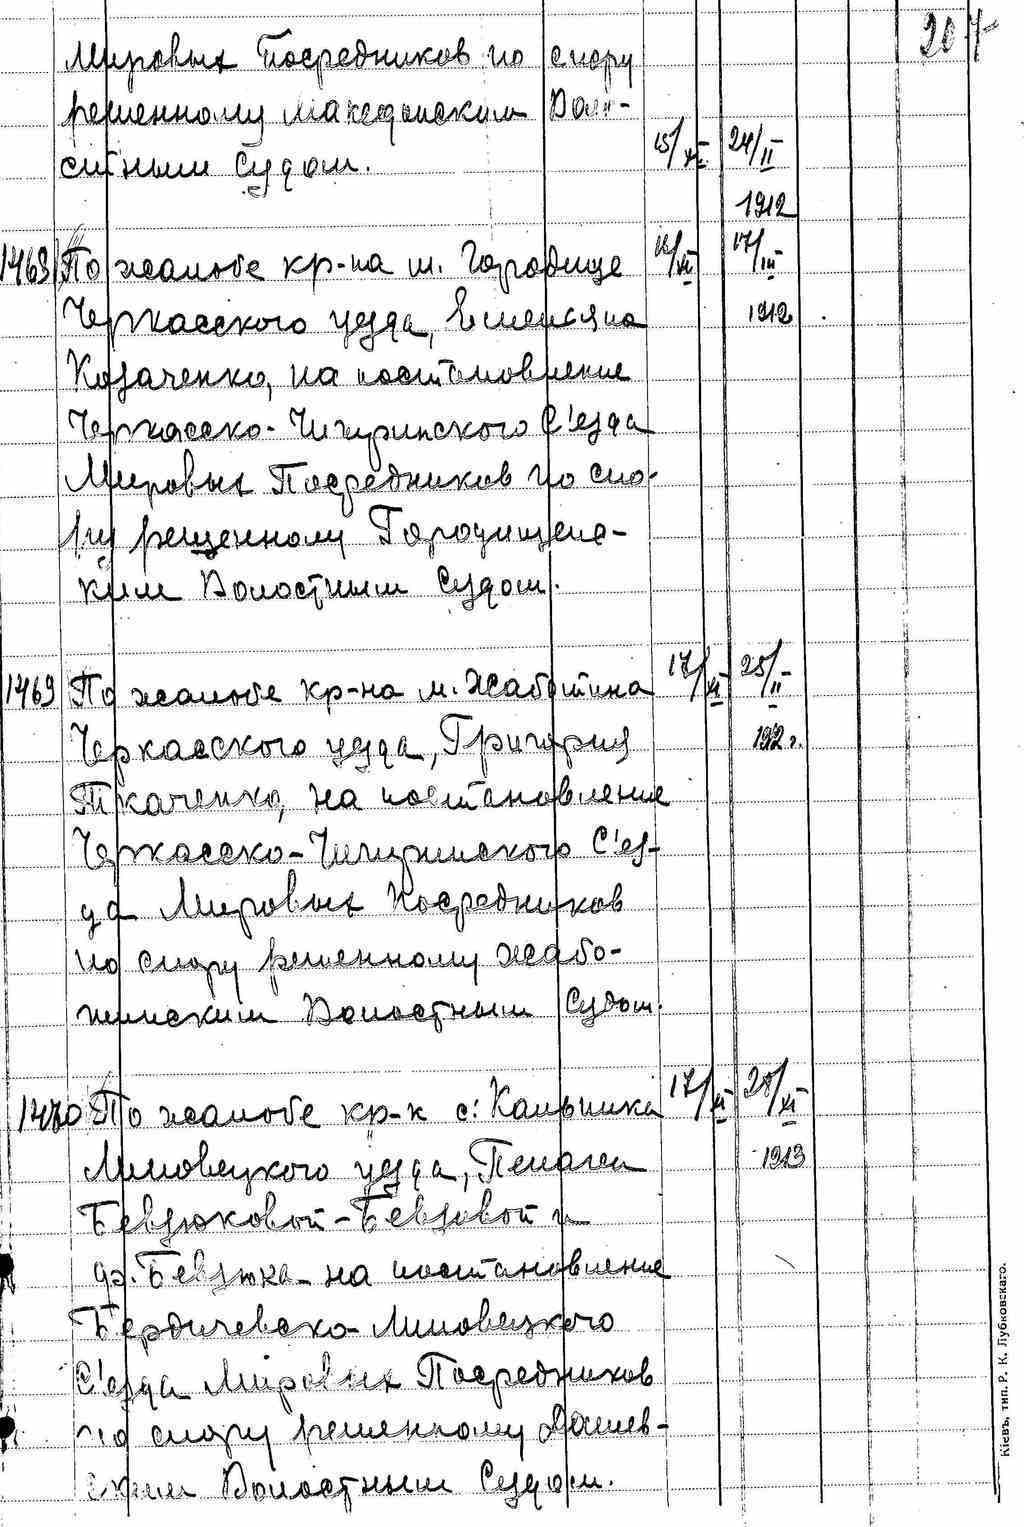 207
Мировых Посредников по спору
решенному Македонским Воло-
стным Судом.
15/XI. 24/II
1912
1468 По жалобе кр-на м. Городище 16/XI 17/III
Черкасского уезда, Емельяна 1912
Козаченко, на постановление
Черкасско-Чигиринского С'езда
Мировых Посредников по спо-
ру решенному Городищенс-
ким Волостным Судом.
1469 По жалобе кр-на м. Жаботина 17/XI 25/II
Черкасского уезда, Григория 1912 г.
Ткаченко, на постановление
Черкасско-Чигиринского С'ез-
да Мировых Посредников
по спору решенному Жабо-
тинским Волостным Судом.
1470 По жалобе кр-к с. Кальника 17/XI 28/XI
Липовецкого уезда, Пелагеи 1913
Бевзюковой-Бевзовой и
др. Бевзюка на постановление
Бердичевско-Липовецкого
С'езда Мировых Посредников
по спору решенному Дашев-
ским Волостным Судом.
Кіевъ, тип. Р. К. Лубковскаго.